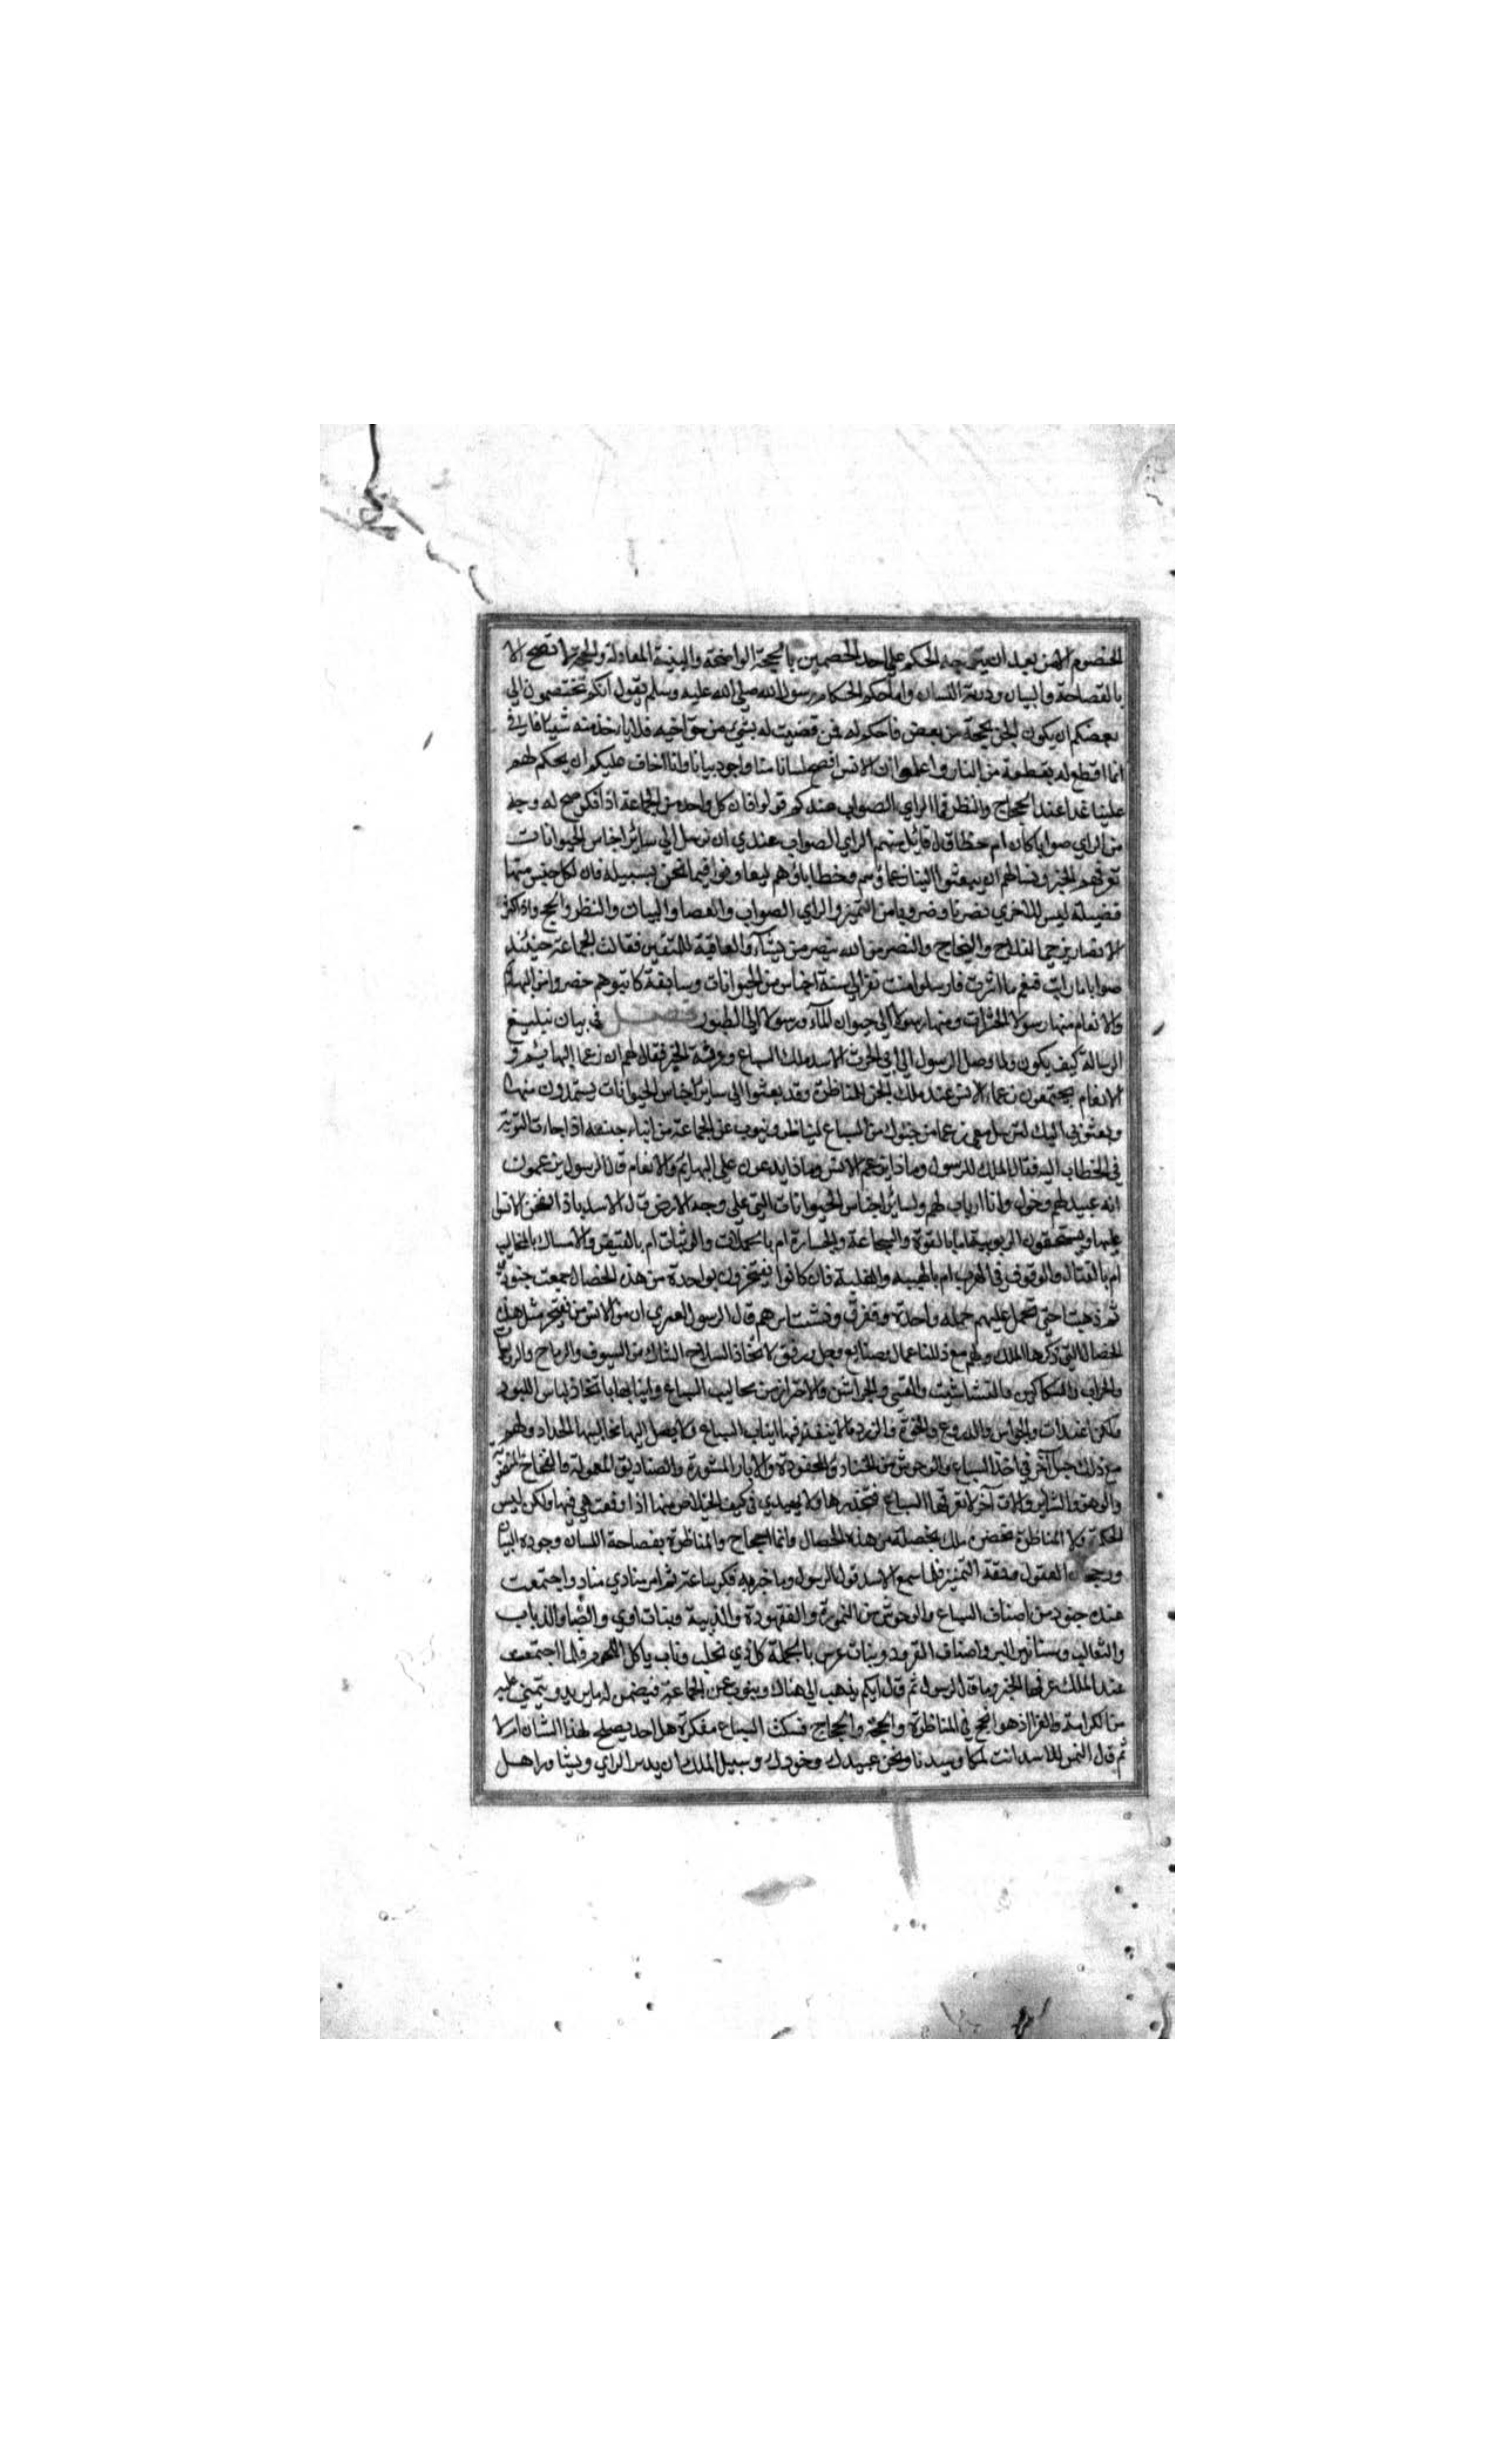 الخصوم الا من بعد ان يتوجه الحكم على احد الخصمين بالحجة الواضحة والبينة العادلة والحجة لا تصح الا
بالفصاحة والبيان وذربة اللسان واما حكم الحكام رسول الله صلى الله عليه وسلم يقول انكم تختصمون الي
بعضكم ان يكون الحن بحجة من بعض فاحكم له فمن قضيت له بشيء من حق اخيه فلا ياخذ منه شيئا فاني
انما اقطع له بقطعة من النار واعلموا ان الانس افصح لسانا منا واجود بيانا وانا اخاف عليكم ان يحكم لهم
علينا غدا عند الحجاج والنظر فما الراي الصواب عندكم قولوا فان كل واحد من الجماعة اذا فكر صح له وجه
من الراي صوابا كان ام خطا قال قائل منهم الراي الصواب عندي ان نرسل الي سائر اجناس الحيوانات
نعرفهم الخبر ونسالهم ان يبعثوا الينا زعماؤهم وخطباؤهم ليعاونوا فيما نحن بسبيله فان لكل جنس منها
فضيلة ليس للاخري وضروبا من التميز والراي الصواب والفصا والبيان والنظر والحجج واذا كثر
الانصار نرجي الفلاح والنجاح والنصر من الله ينصر من يشاء والعاقبة للمتقين فقالت الجماعة حينئذ
صوابا ما رايت فنعم ما اشرت فارسلوا ستة نفر الي ستة اجناس من الحيوانات وسابعة كانوا هم حضروا من البهائم
والانعام منها رسولا الحشرات ومنها رسولا الي حيوان الماء ورسولا الي الطيور فصل في بيان تبليغ
الرسالة كيف يكون ولما وصل الرسول الي ابي الحرث الاسد ملك السباع وعرفه الخبر فقال لهم ان زعما البهايم و
الانعام يجتمعون زعماء الانس عند ملك الجن للمناظرة وقد بعثوا الي سائر اجناس الحيوانات يستمدون منها
وبعثوني اليك لترسل معي زعيما من جنودك من السباع ليناظر وينوب عن الجماعة من ابناء جنسه اذا جاءت النوبة
في الخطاب اليه فقال الملك للرسول وماذا يزعم الانس وماذا يدعون علي البهائم والانعام قال الرسول يزعمون
انه عبيد لهم وخول وانا ارباب لهم ولسائر اجناس الحيوانات التي علي وجه الارض قال الاسد بماذا افتخر الانس
عليها ويستحقون الربوبية بالقوة والشجاعة والجسارة ام بالحملات والوثبات ام بالقبض والامساك بالمخاليب
ام بالقتال والوقوف في الحرب ام بالهيبة والغلبة فان كانوا يفتخرون بواحدة من هذه الخصال جمعت جنودي
ثم ذهبنا حتي نحمل عليهم حملة واحدة ونفرق قال الرسول لعمري ان من الانس من يفتخر بمثل هذه
الخصال التي ذكرها الملك ولهم مع ذلك اعمال وصنايع وحيل ورفق لاتخاذ السلاح الشاك من السيوف والرماح
والحراب والسكاكين والنشاشيب والقسي والجواشن والاحتراز من مخاليب السباع وانيابها باتخاذ لباس اللبود
والدروع والخوذ والزرد ما لا ينفذ فيها انياب السباع ولا يصل اليها مخاليبها الحداد ولهم
مع ذلك حيل آخر في اخذ السباع والوحوش من الخنادق المحفورة والابار المستورة والصناديق المعمولة والفخاخ
والوهق والات آخر لا تعرفها السباع فتحذرها ولا يهتدي في كيف الخلاص منها اذا وقعت هي فيها ولكن ليس
الحكم ولا المناظرة بحضرة ملك بخصلة من هذه الخصال وانما الحجاج والمناظرة بفصاحة اللسان وجودة البيان
ورجحان العقول ودقة التميز فلما سمع الاسد قول الرسول وما اخبره فكر ساعة ثم امر منادي مناد واجتمعت
عنده جنود من اصناف السباع والوحوش من النمورة والفهودة والدببة وبنات اوي والضبا والذياب
والثعالب وسنانير البر واصناف القرود وبنات عرس بالجملة كل ذي مخلب وناب ياكل اللحم فلما اجتمعت
عند الملك عرفها الخبر وما قال الرسول ثم قال ايكم يذهب الي هناك وينوب عن الجماعة فيضمن له ما يريد ويتمني عليه
من الكرامة والقرا اذ هو انجح في المناظرة والحجة والحجاج فسكت السباع مفكرة هل احد يصلح لهذا الشان ام لا
ثم قال النمر للاسد انت ملكنا وسيدنا ونحن عبيدك وجنودك وسبيل الملك ان يدبر الراي ويشاور اهل